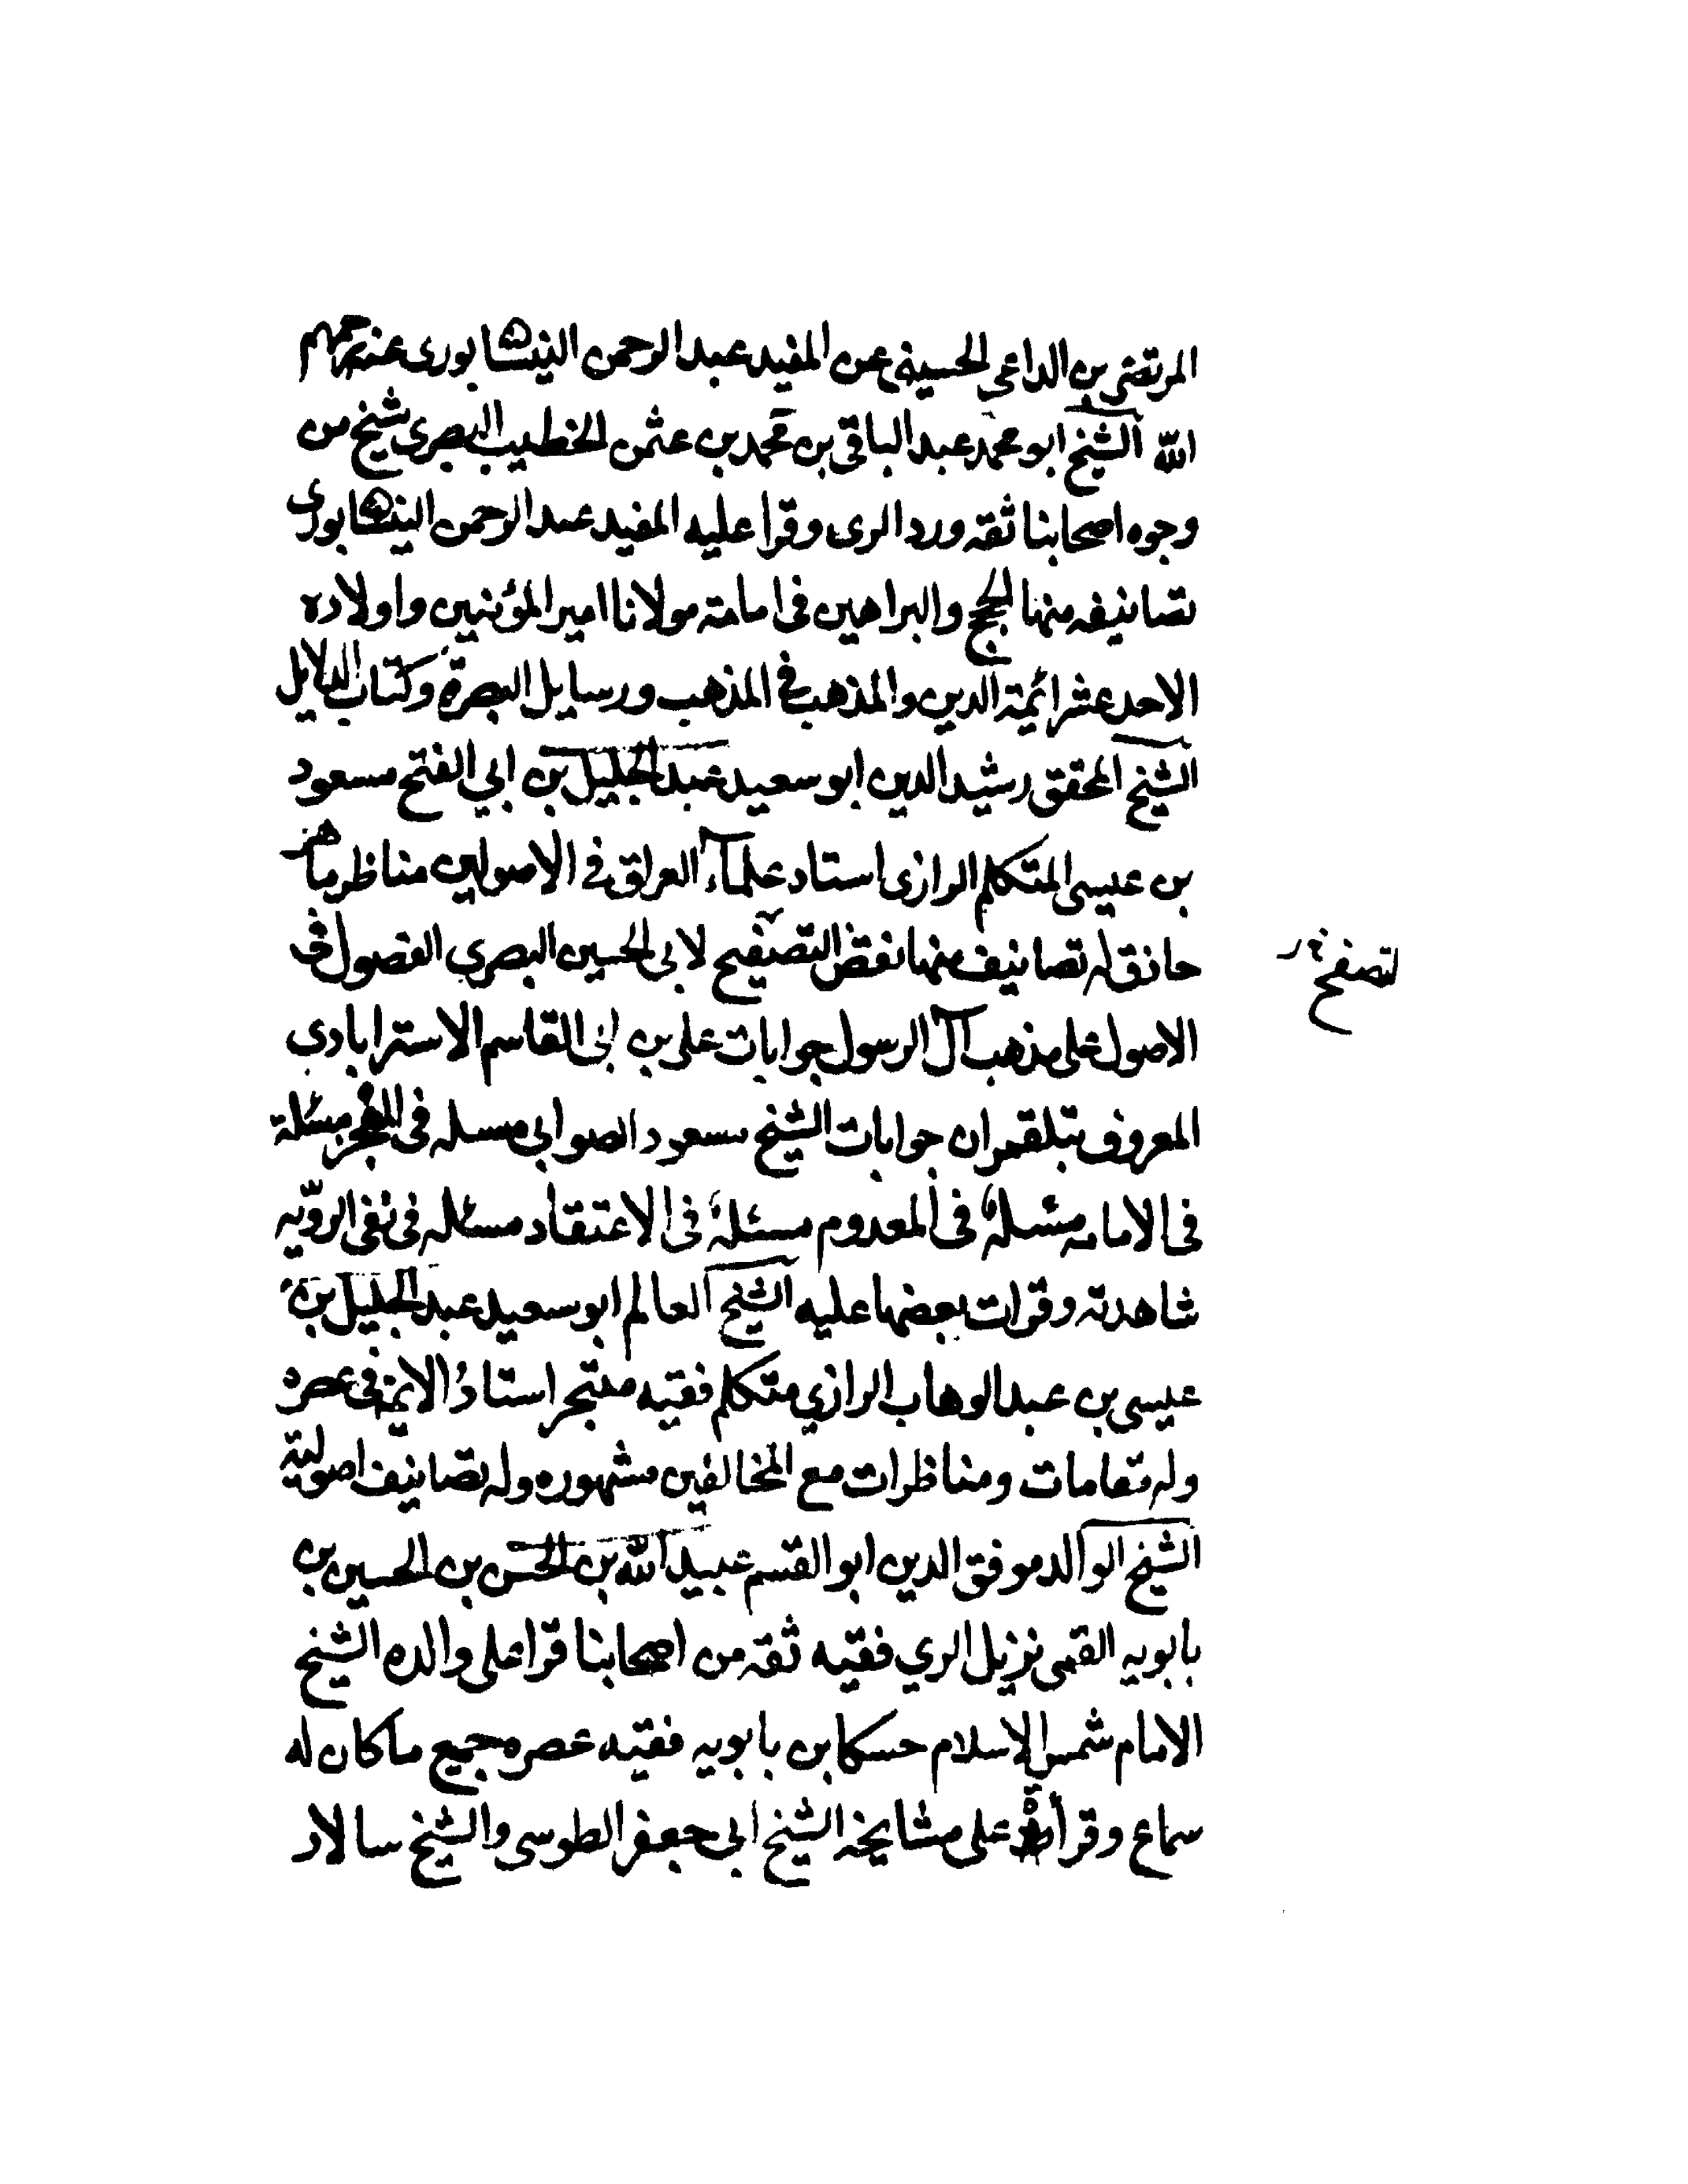 المرتضى بن الداعى الحسينى عن المفيد عبد الرحمن النيشابورى عنه رحمهم
الله الشيخ ابو محمد عبد الباقى بن محمد بن عثمن الخطيب البصرى شيخ من
وجوه اصحابنا ثقه ورد الرى وقرا عليه المفيد عبد الرحمن النيشابورى
تصانيفه منها الحجج والبراهين فى امامته مولانا امير المؤمنين واولاده
الاحد عشر ائمة الدين والمذهب فى المذهب ورسايل البصرة وكتاب الدلايل
الشيخ المحقق رشيد الدين ابو سعيد عبد الجليل بن ابي الفتح مسعود
بن عيسى المتكلم الرازى استاد علمآء العراق فى الاصولين مناظر ماهر
حاذق له تصانيف منها نقض التصفح لابى الحسين البصري الفصول فى
لتصفح
الاصول على مذهب آل الرسول جوابات على بن ابى القاسم الاسترابادي
المعروف ببلقمران جوابات الشيخ مسعود الصوابى مسله فى المعجز مسئلة
فى الامامه مسئلة فى المعدوم مسئلة فى الاعتقاد مسئله فى نفى الرويّه
شاهدته وقرات بعضها عليه الشيخ العالم ابو سعيد عبد الجليل بن
عيسى بن عبد الوهاب الرازي متكلم فقيه متبحر استاد الايمة فى عصره
وله مقامات ومناظرات مع المخالفين مشهوره وله تصانيف اصولية
الشيخ الوالد موفق الدين ابو القسم عبيد الله بن الحسن بن الحسين بن
بابويه القمى نزيل الري فقيه ثقه من اصحابنا قرا على والده الشيخ
الامام شمس الاسلام حسكا بن بابويه فقيه عصره جميع ما كان له
سماع وقرأة على مشايخه الشيخ ابى جعفر الطوسى والشيخ سالار